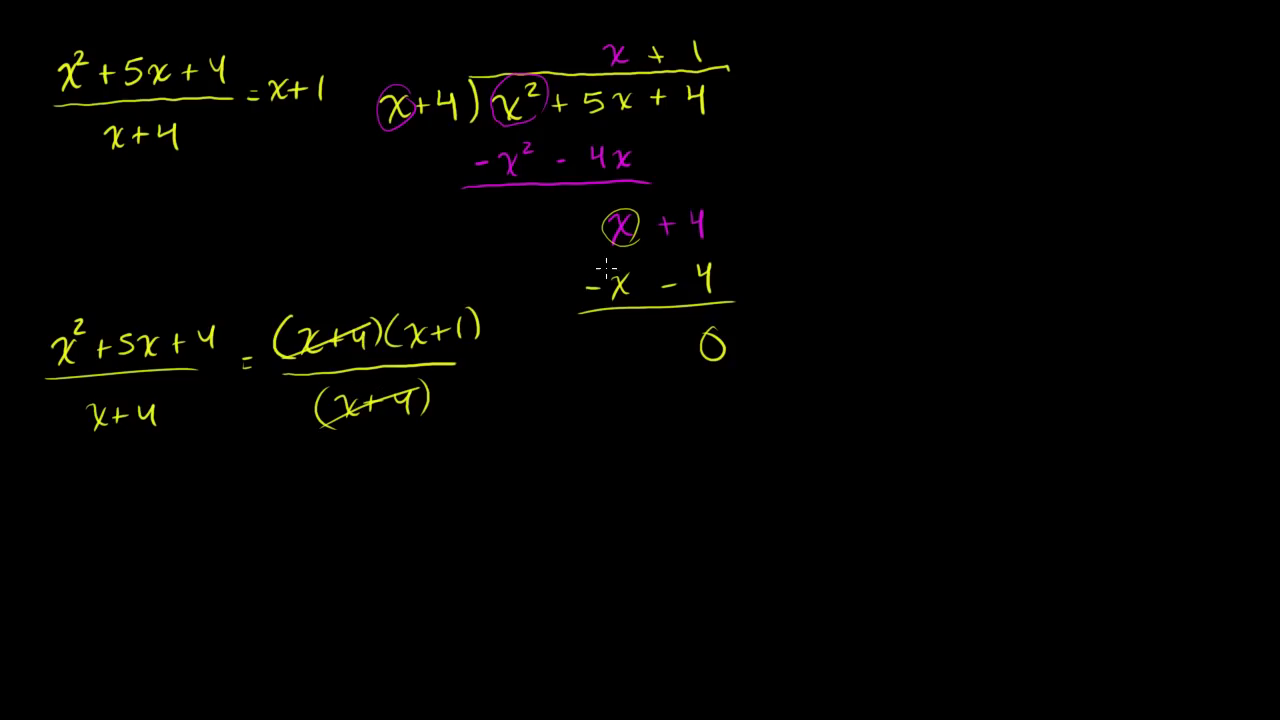 x² + 5x + 4 / x + 4 = x + 1
x + 1
x + 4 ) x² + 5x + 4
- x² - 4x
x + 4
- x - 4
0
x² + 5x + 4 / x + 4 = (x + 4)(x + 1) / (x + 4)